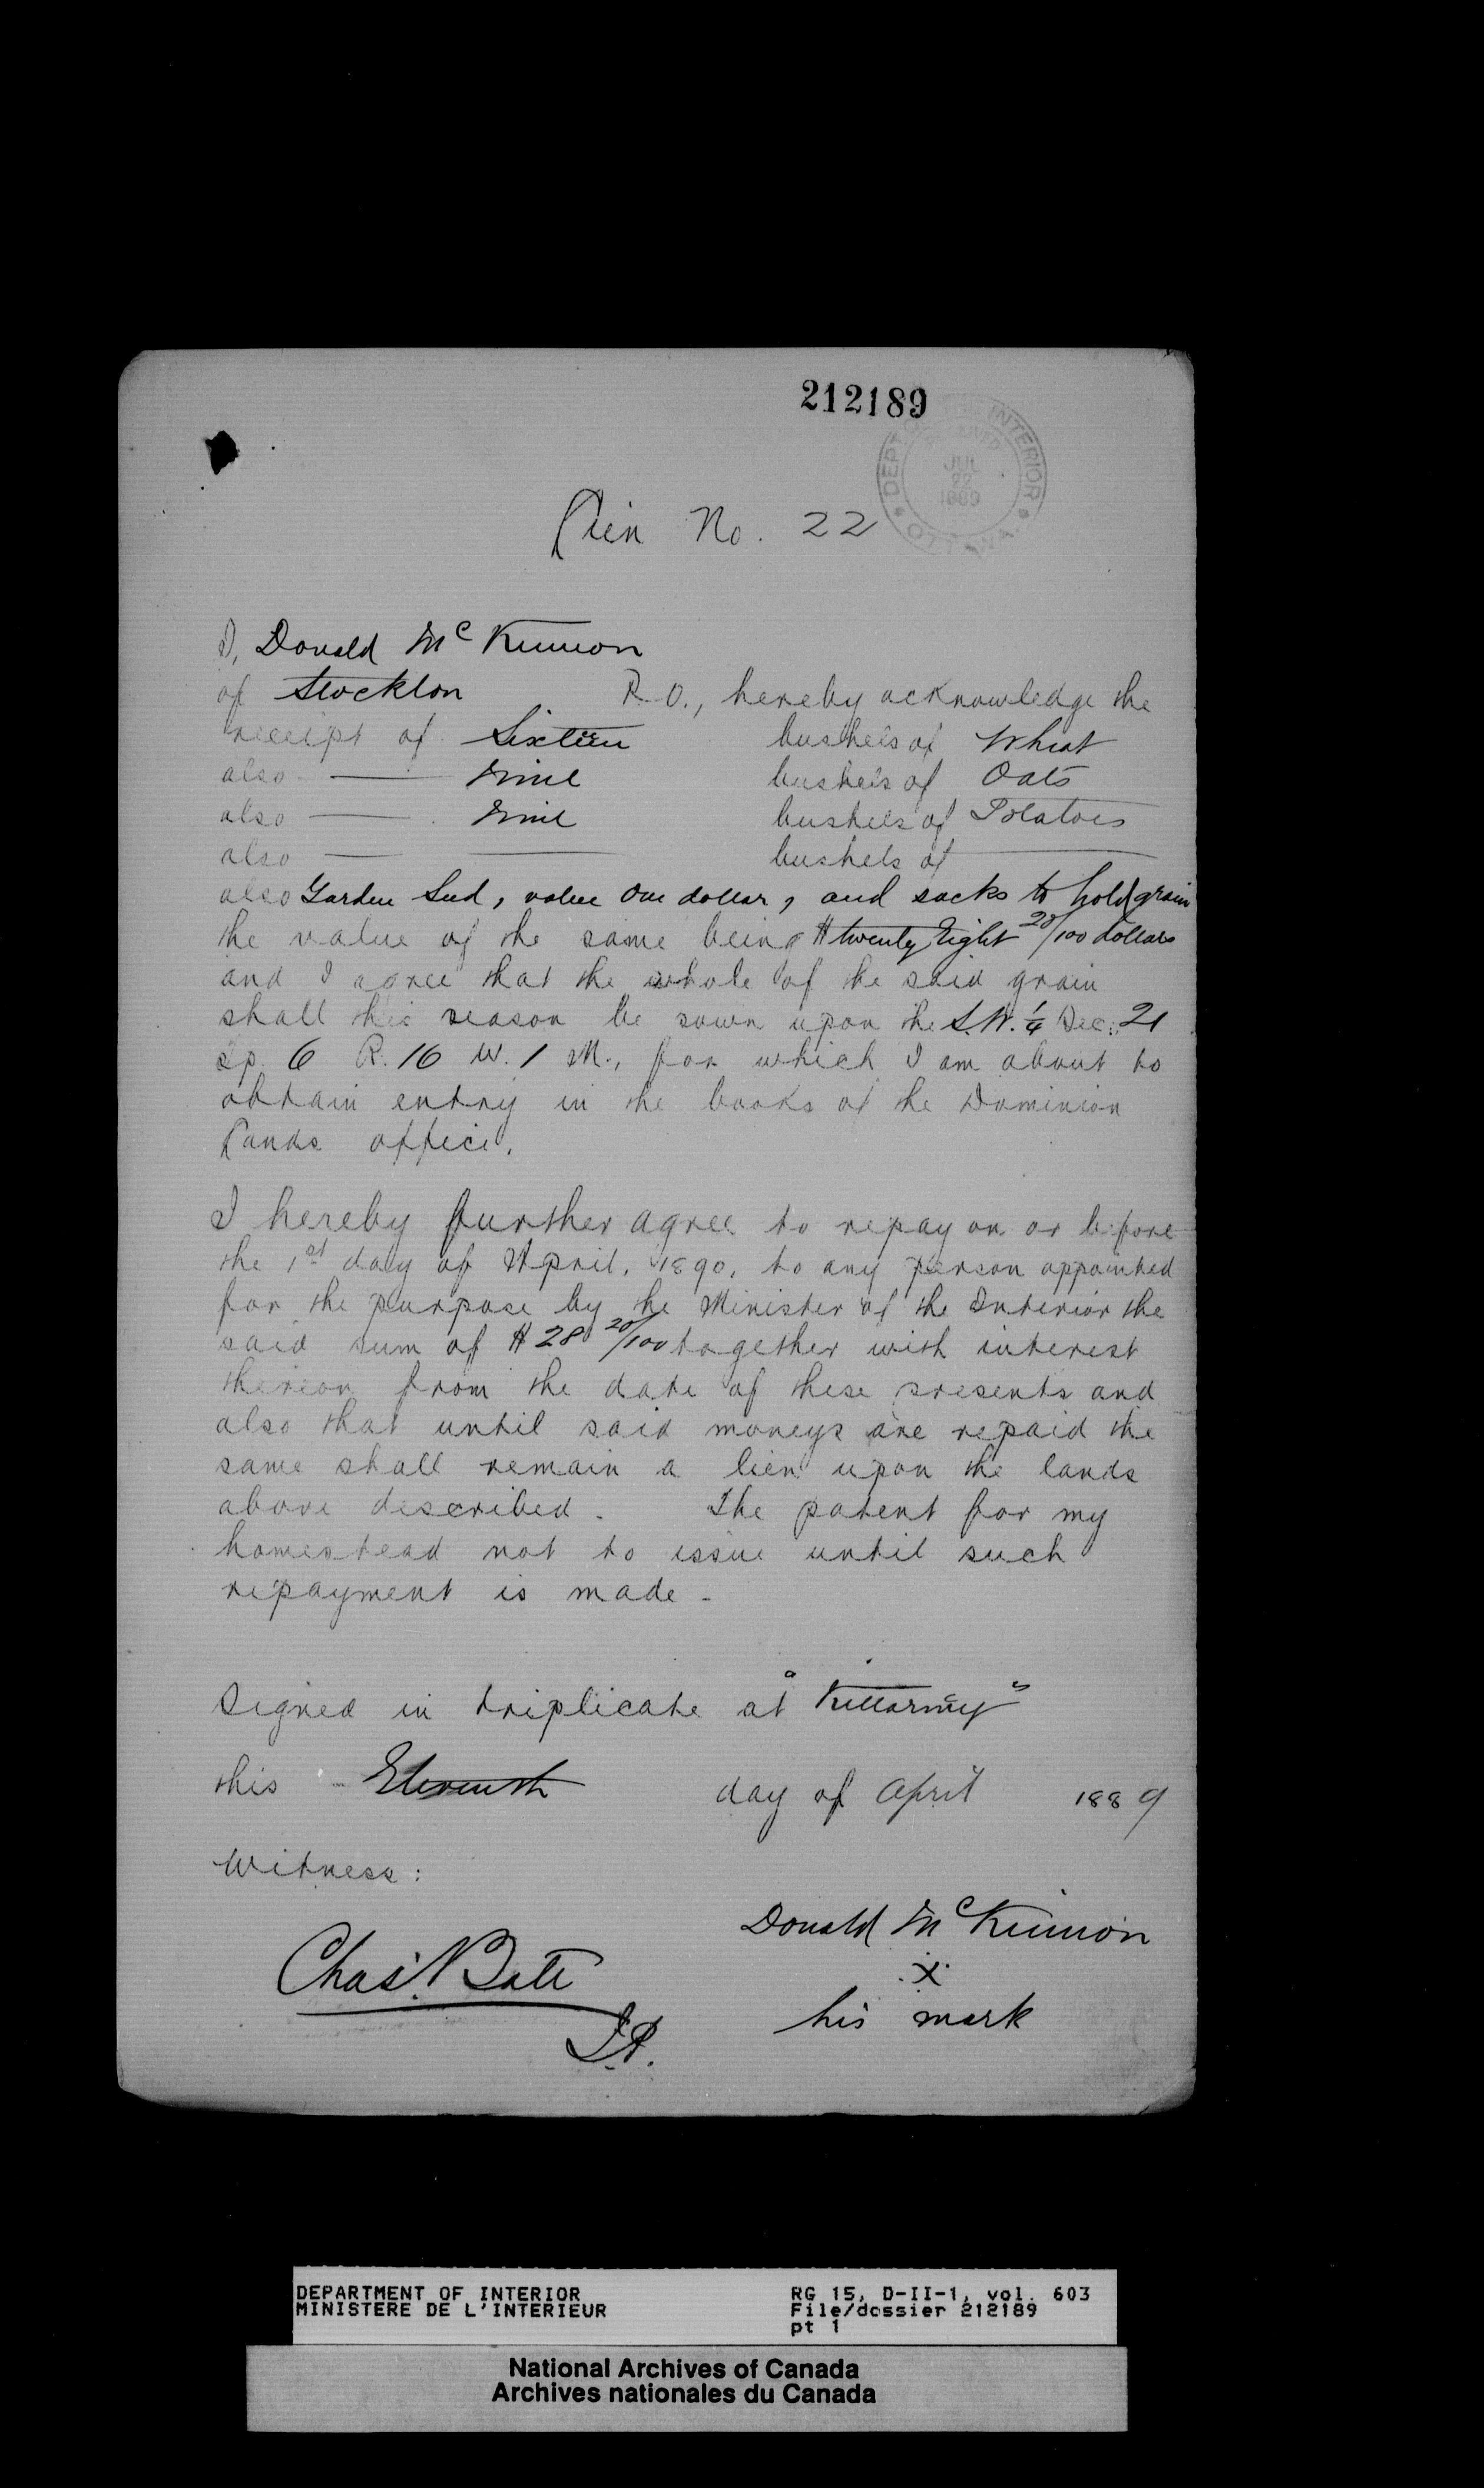 212189
DEPT. OF THE INTERIOR
JUL
22
1889
OTTAWA
Lien No. 22
I, Donald McKinnon
of Stockton P.O., hereby acknowledge the
receipt of Sixteen bushels of Wheat
also — Nine bushels of Oats
also — Nine bushels of Potatoes
also — — bushels of —
also Garden Seed, value One dollar, and sacks to hold grain
the value of the same being $ twenty Eight 20/100 dollars
and I agree that the whole of the said grain
shall this season be sown upon the S.W. 1/4 Sec. 21
Tp. 6 R. 16 W. 1 M., for which I am about to
obtain entry in the books of the Dominion
Lands office.
I hereby further agree to repay on or before
the 1st day of April, 1890, to any person appointed
for the purpose by the Minister of the Interior the
said sum of $ 28 20/100 together with interest
thereon from the date of these presents and
also that until said moneys are repaid the
same shall remain a lien upon the lands
above described. The patent for my
homestead not to issue until such
repayment is made -
Signed in triplicate at "Killarney"
this Eleventh day of April 1889
Witness:
Donald McKinnon
Chas. Bate x
J.P. his mark
DEPARTMENT OF INTERIOR RG 15, D-II-1, vol. 603
MINISTERE DE L'INTERIEUR File/dossier 212189
pt 1
National Archives of Canada
Archives nationales du Canada